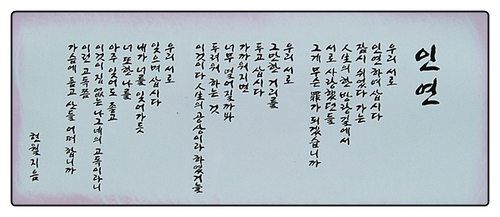 인연
우리 서로
인연하여 삽시다
잠시 쉬었다 가는
인생의 한 방랑길에서
서로 사랑했던들
그게 무슨 罪가 되겠습니까
우리 서로
그만한 거리를
두고 삽시다
가까워지면
너무 멀어질까봐
두려워 하는 것
이것이 다 인생의 공상이라 하였거늘
우리 서로
잊으며 삽시다
내가 너를 잊어가듯
너 또한 나를
아주 잊어도 좋고
이것이 집 없는 나그네의 고독이라니
이런 고독쯤
가슴에 품고 산들 어떠 합니까
현월 지음